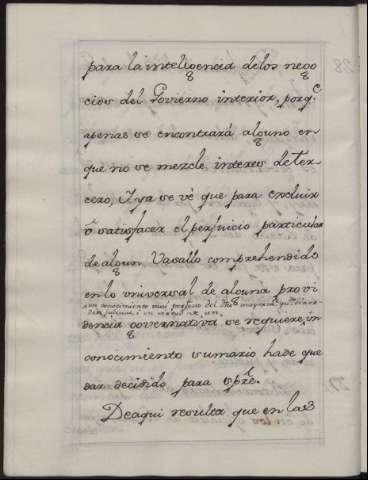 para la inteligencia delos nego
cios del Govierno interior, porq.e
apenas se encontrará alguno en
que no se mezcle interes de ter-
cero, I ya se vé que para excluir
ò satisfacer el perjuicio particular
de algun Vasallo comprehendido
en lo universal de alguna provi
un conocimiento mui profundo del
dencia governativa se requiere, in
conocimiento sumario hade que
dar decidido para spre.
De aqui resulta que en las